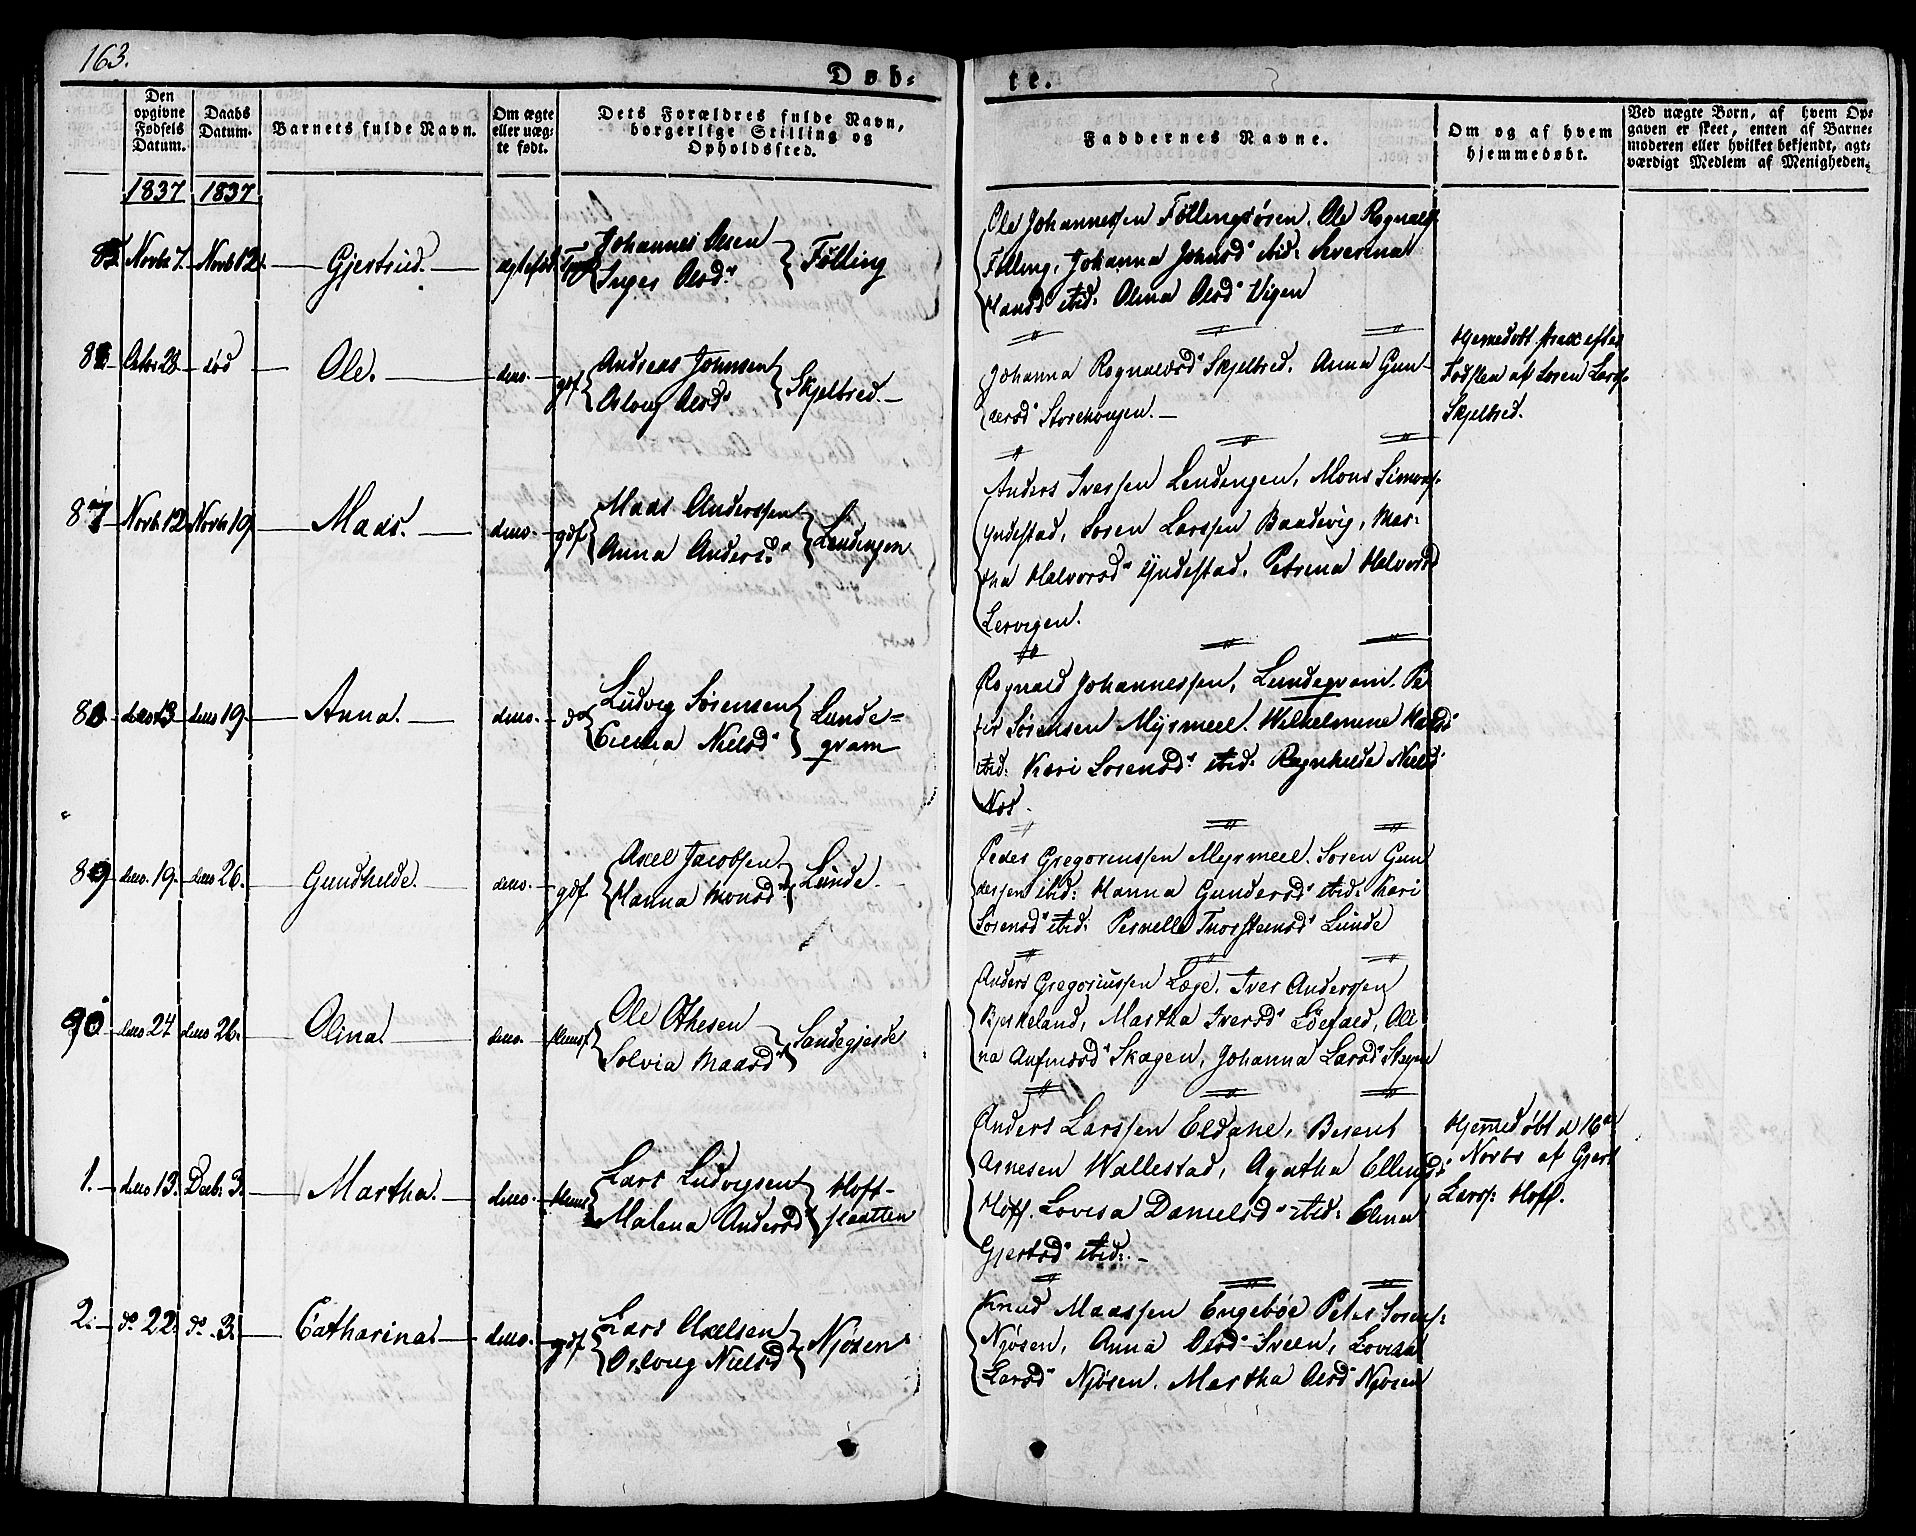 163.
Døb-
te.
Den opgivne Fødsels Datum.
Daabs Datum.
Barnets fulde Navn.
Om ægte eller uæg-te født.
Dets Forældres fulde Navn, borgerlige Stilling og Opholdssted.
Faddernes Navne.
Om og af hvem hjemmedøbt.
Ved uægte Børn, af hvem Op-
gaven er skeet, enten af Barne-
moderen eller hvilket bekjendt, agt-
værdigt Medlem af Menigheden.
1837 1837
Novbr 7. Novb 12. Gjertrud.
Johannes Olsen
Inger Olsd.
Følling
Ole Johannessen Føllingsøren. Ole Rognalds:
Følling, Johanna Johnsd ibid: Severina
Hansd ibid: Olina Olsd Vigen
86 Octbr 28 død Ole. deto. gdf
Andreas Johnsen
Osloug Olsd
Skjelbred.
Johanna Rognaldsd Skjelbred. Anna Gun-
dersd Storehougen.
Hjemedøbt strax efter
Fødslen af Søren Larss:
Skjelbred.
87 Novb. 12 Novbr 19 Mads. deto. gdf
Mads Anderssen
Anna Andersd.
Lendingen
Anders Iverssen Lendingen, Mons Simons:
Yndestad, Søren Larssen Baadevig, Mar-
tha Halvorsd Yndestad, Petrina Halvorsd
Lervigen.
88 deto 13 deto 19. Anna. deto. do
Ludvig Sørensen
Elina Nielsd
Lunde-
gram
Rognald Johannessen, Lundegram. Pe
ter Sørensen Myrmeel. Wilhelmine Madsd
ibid: Kari Sorensd ibid: Ragnhilde Nielsd
Nos.
89 deto. 19. deto 26. Gundhilde. deto. gdf
Axel Jacobsen
Hanna Monsd
Lunde.
Peder Gregoriussen Myrmeel. Søren Gun
dersen ibid: Hanna Gundersd ibid: Kari
Sorensd ibid: Pernelle Thorsteensd Lunde
90 deto 24 deto 26. Olina deto. Huusf
Ole Othesen
Solvia Madsd
Sandegjerde
Anders Gregoriussen Læge, Iver Anderssen
Birkeland, Martha Iversd Løefald, Oli
na Aufindsd Skagen, Johanna Larsd
1. deto 13. Decbr 3. Martha. deto. Huusf
Lars Ludvigsen
Malena Andersd
Hoff-
slaatten
Anders Larssen Eldahl, Berent
Arnesen Wallestad, Agatha Ellingsd
Hoff. Lovisa Danielsd ibid: Elina
Gjertsd ibid:
Hjemedøbt d 16de
Novbr af Gjert
Larss: Hoff.
2. do 22. do 3. Catharina. deto. gdf
Lars Axelsen
Osloug Nielsd
Njøsen
Knud Madssen Engebøe Peter Sørens:
Njøsen, Anna Olsd Sveen, Lovisa
Larsd Njøsen. Martha Olsd Njøsen